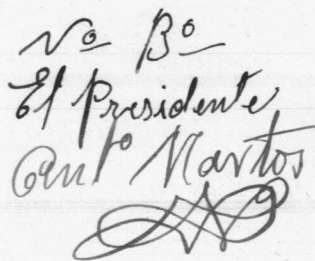 Vº Bº
El Presidente
Antº Martos